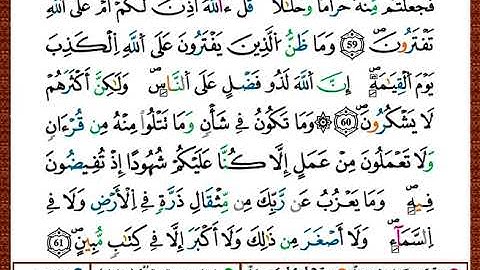 فَجَعَلْتُم مِّنْهُ حَرَامًا وَحَلَالًا قُلْ ءَاللَّهُ أَذِنَ لَكُمْ أَمْ عَلَى اللَّهِ
تَفْتَرُونَ ۝٥٩ وَمَا ظَنُّ الَّذِينَ يَفْتَرُونَ عَلَى اللَّهِ الْكَذِبَ
يَوْمَ الْقِيَامَةِ إِنَّ اللَّهَ لَذُو فَضْلٍ عَلَى النَّاسِ وَلَٰكِنَّ أَكْثَرَهُمْ
لَا يَشْكُرُونَ ۝٦٠ ۞ وَمَا تَكُونُ فِي شَأْنٍ وَمَا تَتْلُوا مِنْهُ مِن قُرْءَانٍ
وَلَا تَعْمَلُونَ مِنْ عَمَلٍ إِلَّا كُنَّا عَلَيْكُمْ شُهُودًا إِذْ تُفِيضُونَ
فِيهِ وَمَا يَعْزُبُ عَن رَّبِّكَ مِن مِّثْقَالِ ذَرَّةٍ فِي الْأَرْضِ وَلَا فِي
السَّمَاءِ وَلَا أَصْغَرَ مِن ذَٰلِكَ وَلَا أَكْبَرَ إِلَّا فِي كِتَابٍ مُّبِينٍ ۝٦١